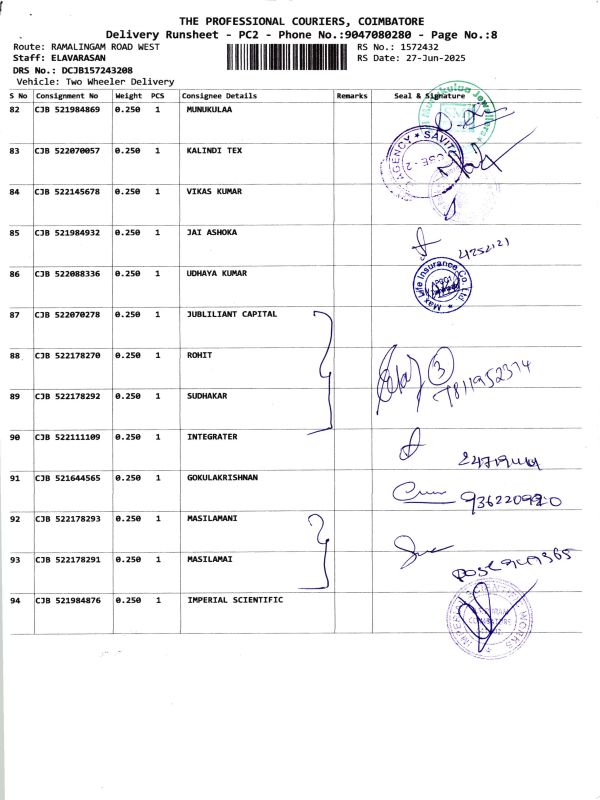 THE PROFESSIONAL COURIERS, COIMBATORE
Delivery Runsheet - PC2 - Phone No.:9047080280 - Page No.:8
Route: RAMALINGAM ROAD WEST RS No.: 1572432
Staff: ELAVARASAN RS Date: 27-Jun-2025
DRS No.: DCJB157243208
Vehicle: Two Wheeler Delivery
S No Consignment No Weight PCS Consignee Details Remarks Seal & Signature
82 CJB 521984869 0.250 1 MUNUKULAA
83 CJB 522070057 0.250 1 KALINDI TEX AGENCY * SAVIT
84 CJB 522145678 0.250 1 VIKAS KUMAR
85 CJB 521984932 0.250 1 JAI ASHOKA
86 CJB 522088336 0.250 1 UDHAYA KUMAR Max Life Insurance Co. Ltd.
87 CJB 522070278 0.250 1 JUBLILIANT CAPITAL
88 CJB 522178270 0.250 1 ROHIT 3 7811952374
89 CJB 522178292 0.250 1 SUDHAKAR
90 CJB 522111109 0.250 1 INTEGRATER
91 CJB 521644565 0.250 1 GOKULAKRISHNAN
92 CJB 522178293 0.250 1 MASILAMANI
93 CJB 522178291 0.250 1 MASILAMAI
94 CJB 521984876 0.250 1 IMPERIAL SCIENTIFIC WORKS